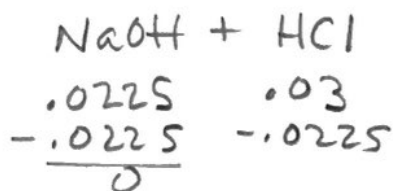 NaOH + HCl
.0225 .03
-.0225 -.0225
0